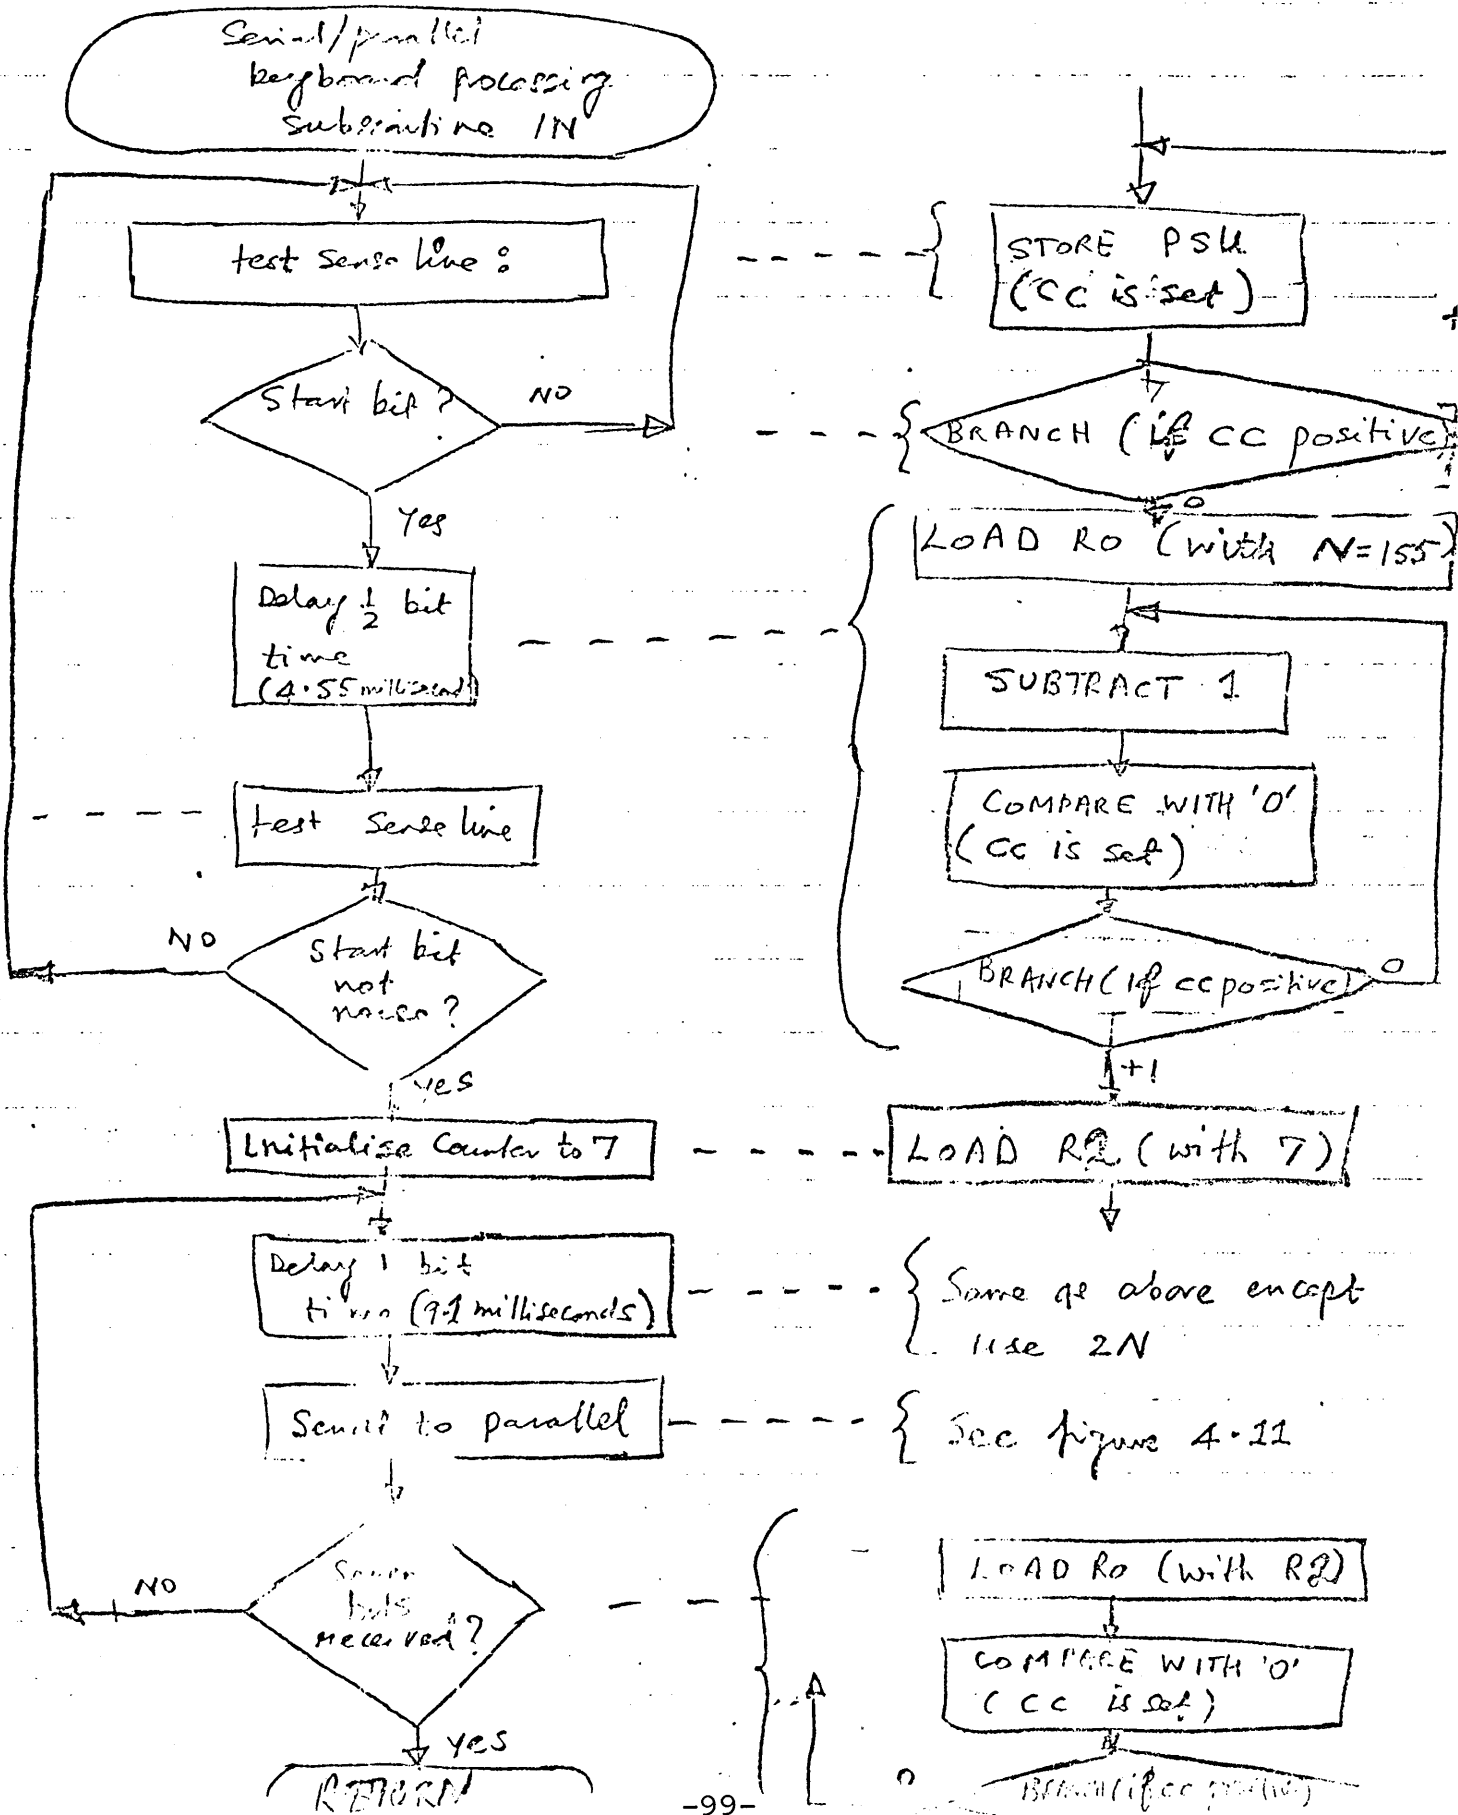 Serial/parallel
keyboard processing
subroutine IN
test sense line :
Start bit ?
NO
Yes
Delay 1/2 bit
time
(4.55 milliseconds)
test Sense line
Start bit
not
noise ?
NO
yes
Initialise Counter to 7
Delay 1 bit
time (9.1 milliseconds)
Serial to parallel
Seven
bits
received?
NO
yes
RETURN
STORE PSU
(CC is set)
+
BRANCH (if CC positive)
0
LOAD R0 (with N=155)
SUBTRACT 1
COMPARE WITH '0'
(CC is set)
BRANCH (if cc positive)
0
+1
LOAD R2 (with 7)
Same as above except
use 2N
See figure 4.11
LOAD R0 (with R2)
COMPARE WITH '0'
(CC is set)
0
BRANCH (if cc positive)
-99-